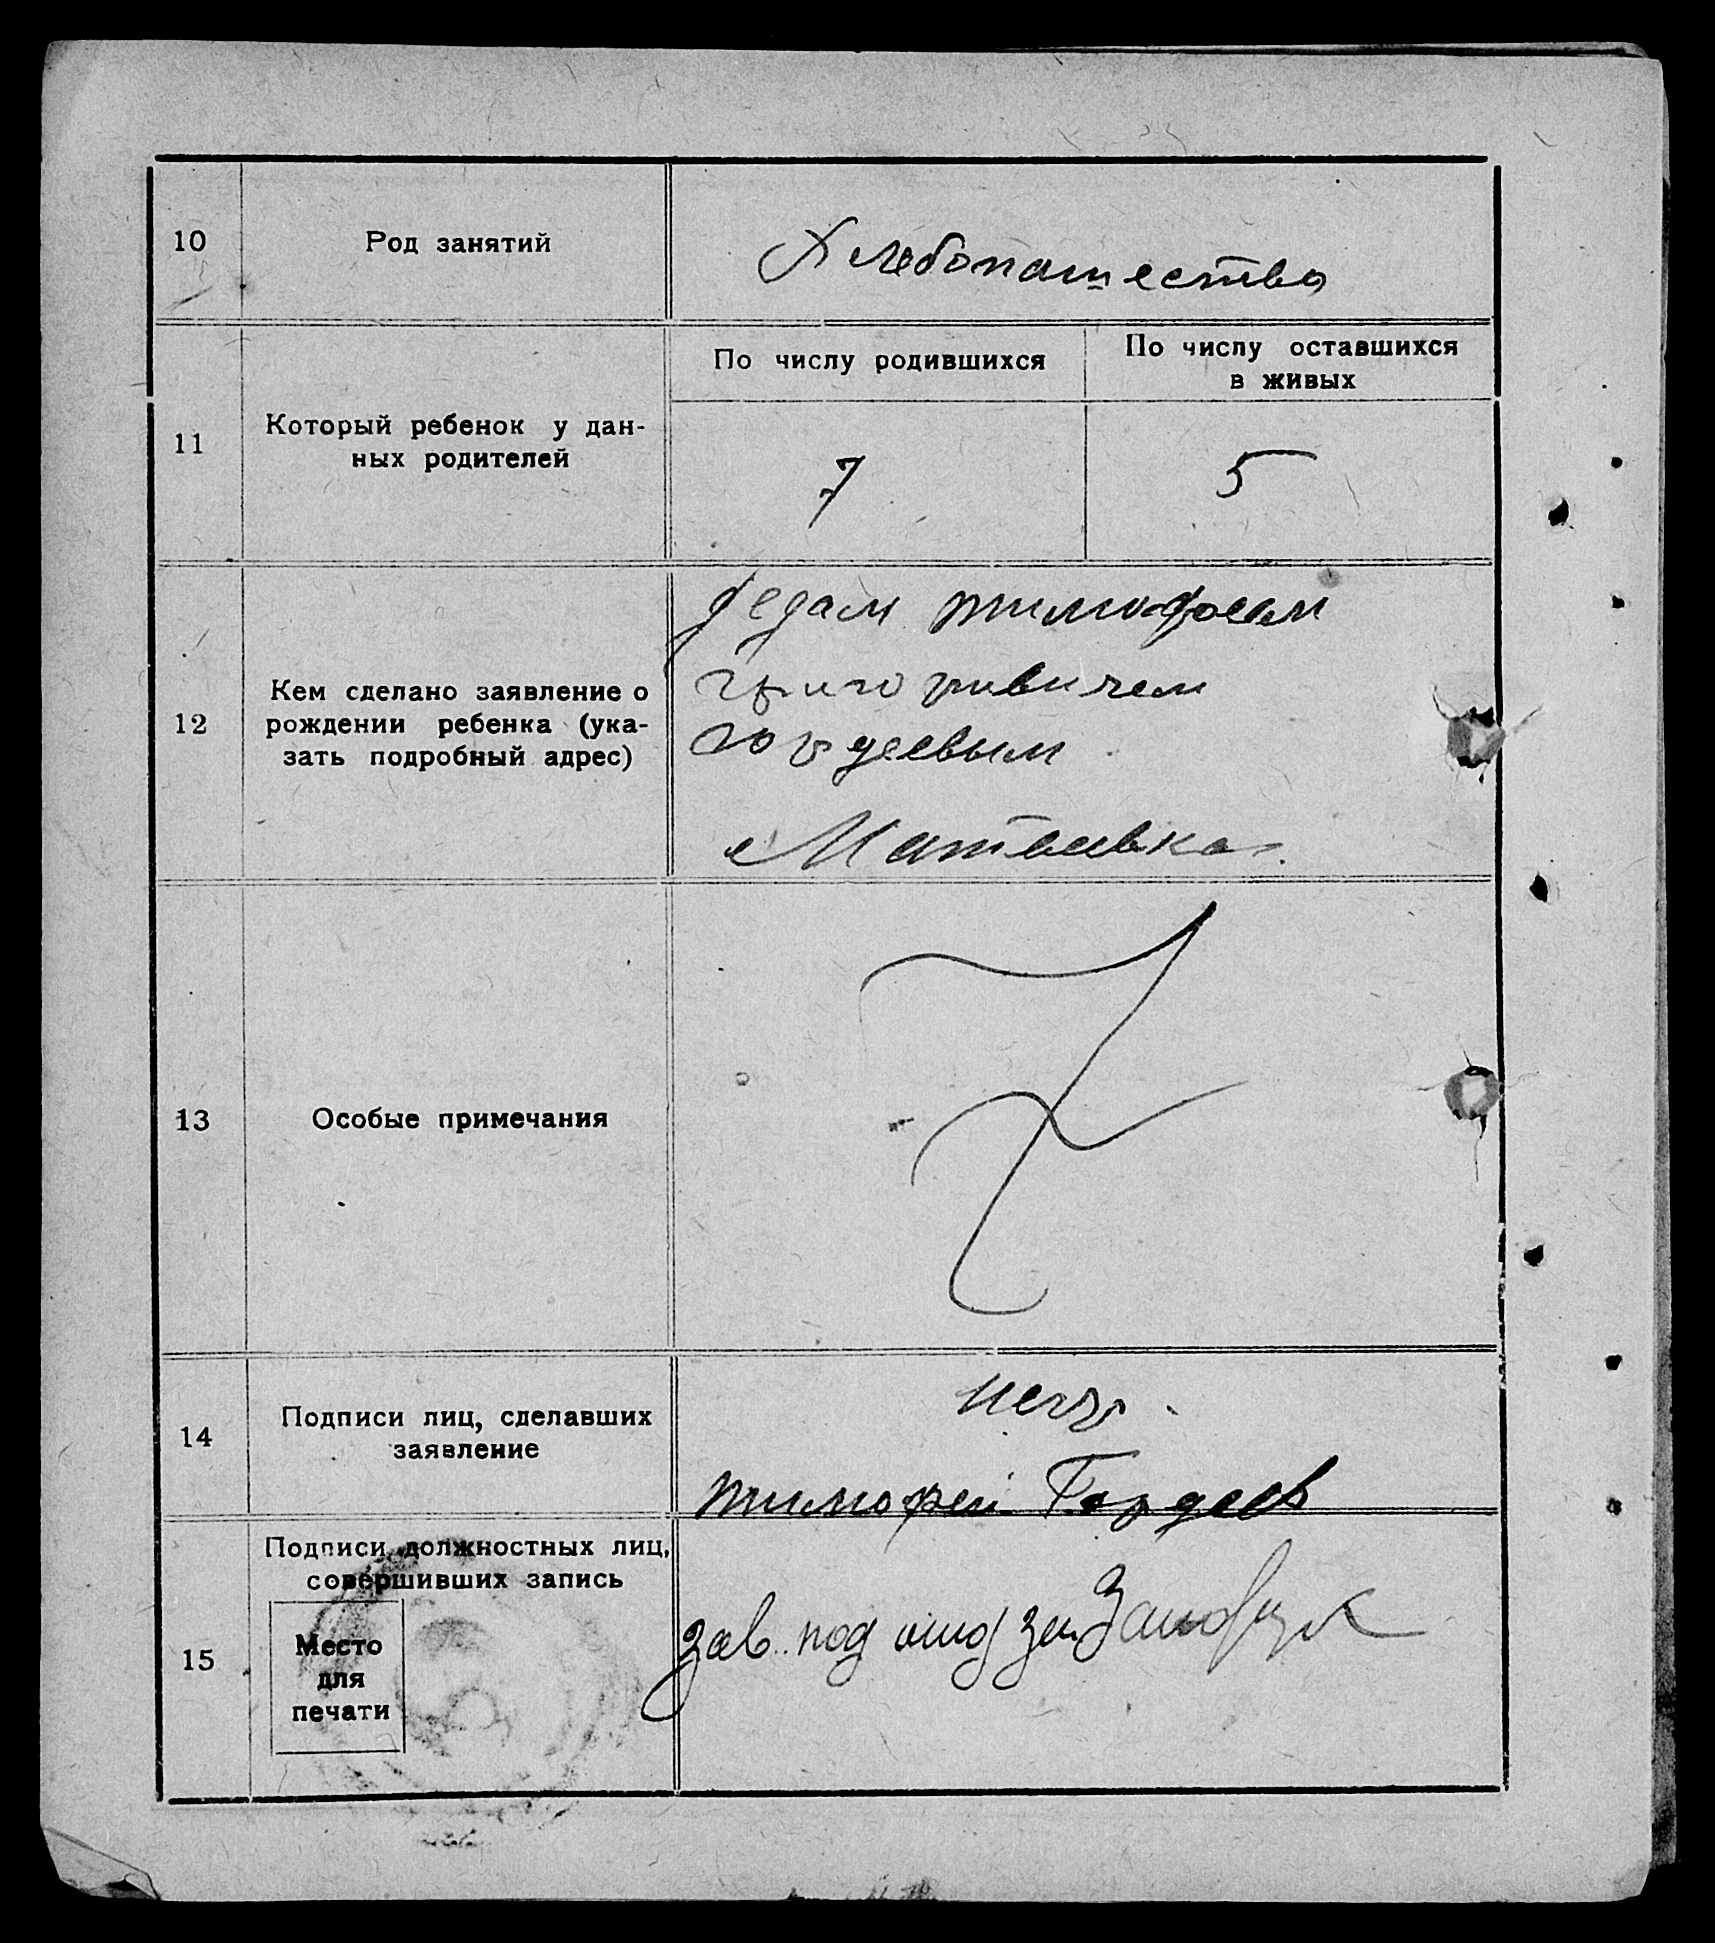 10
Род занятий
Хлебопашество
11
Который ребенок у дан-
ных родителей
По числу родившихся
По числу оставшихся
в живых
7
5
12
Кем сделано заявление о
рождении ребенка (ука-
зать подробный адрес)
дедам тимофеем
григоривичем
гордеевым
Матвеевка
13
Особые примечания
14
Подписи лиц, сделавших
заявление
негр.
тимофей Гордеев
15
Подписи должностных лиц,
совершивших запись
Место
для
печати
зав. под